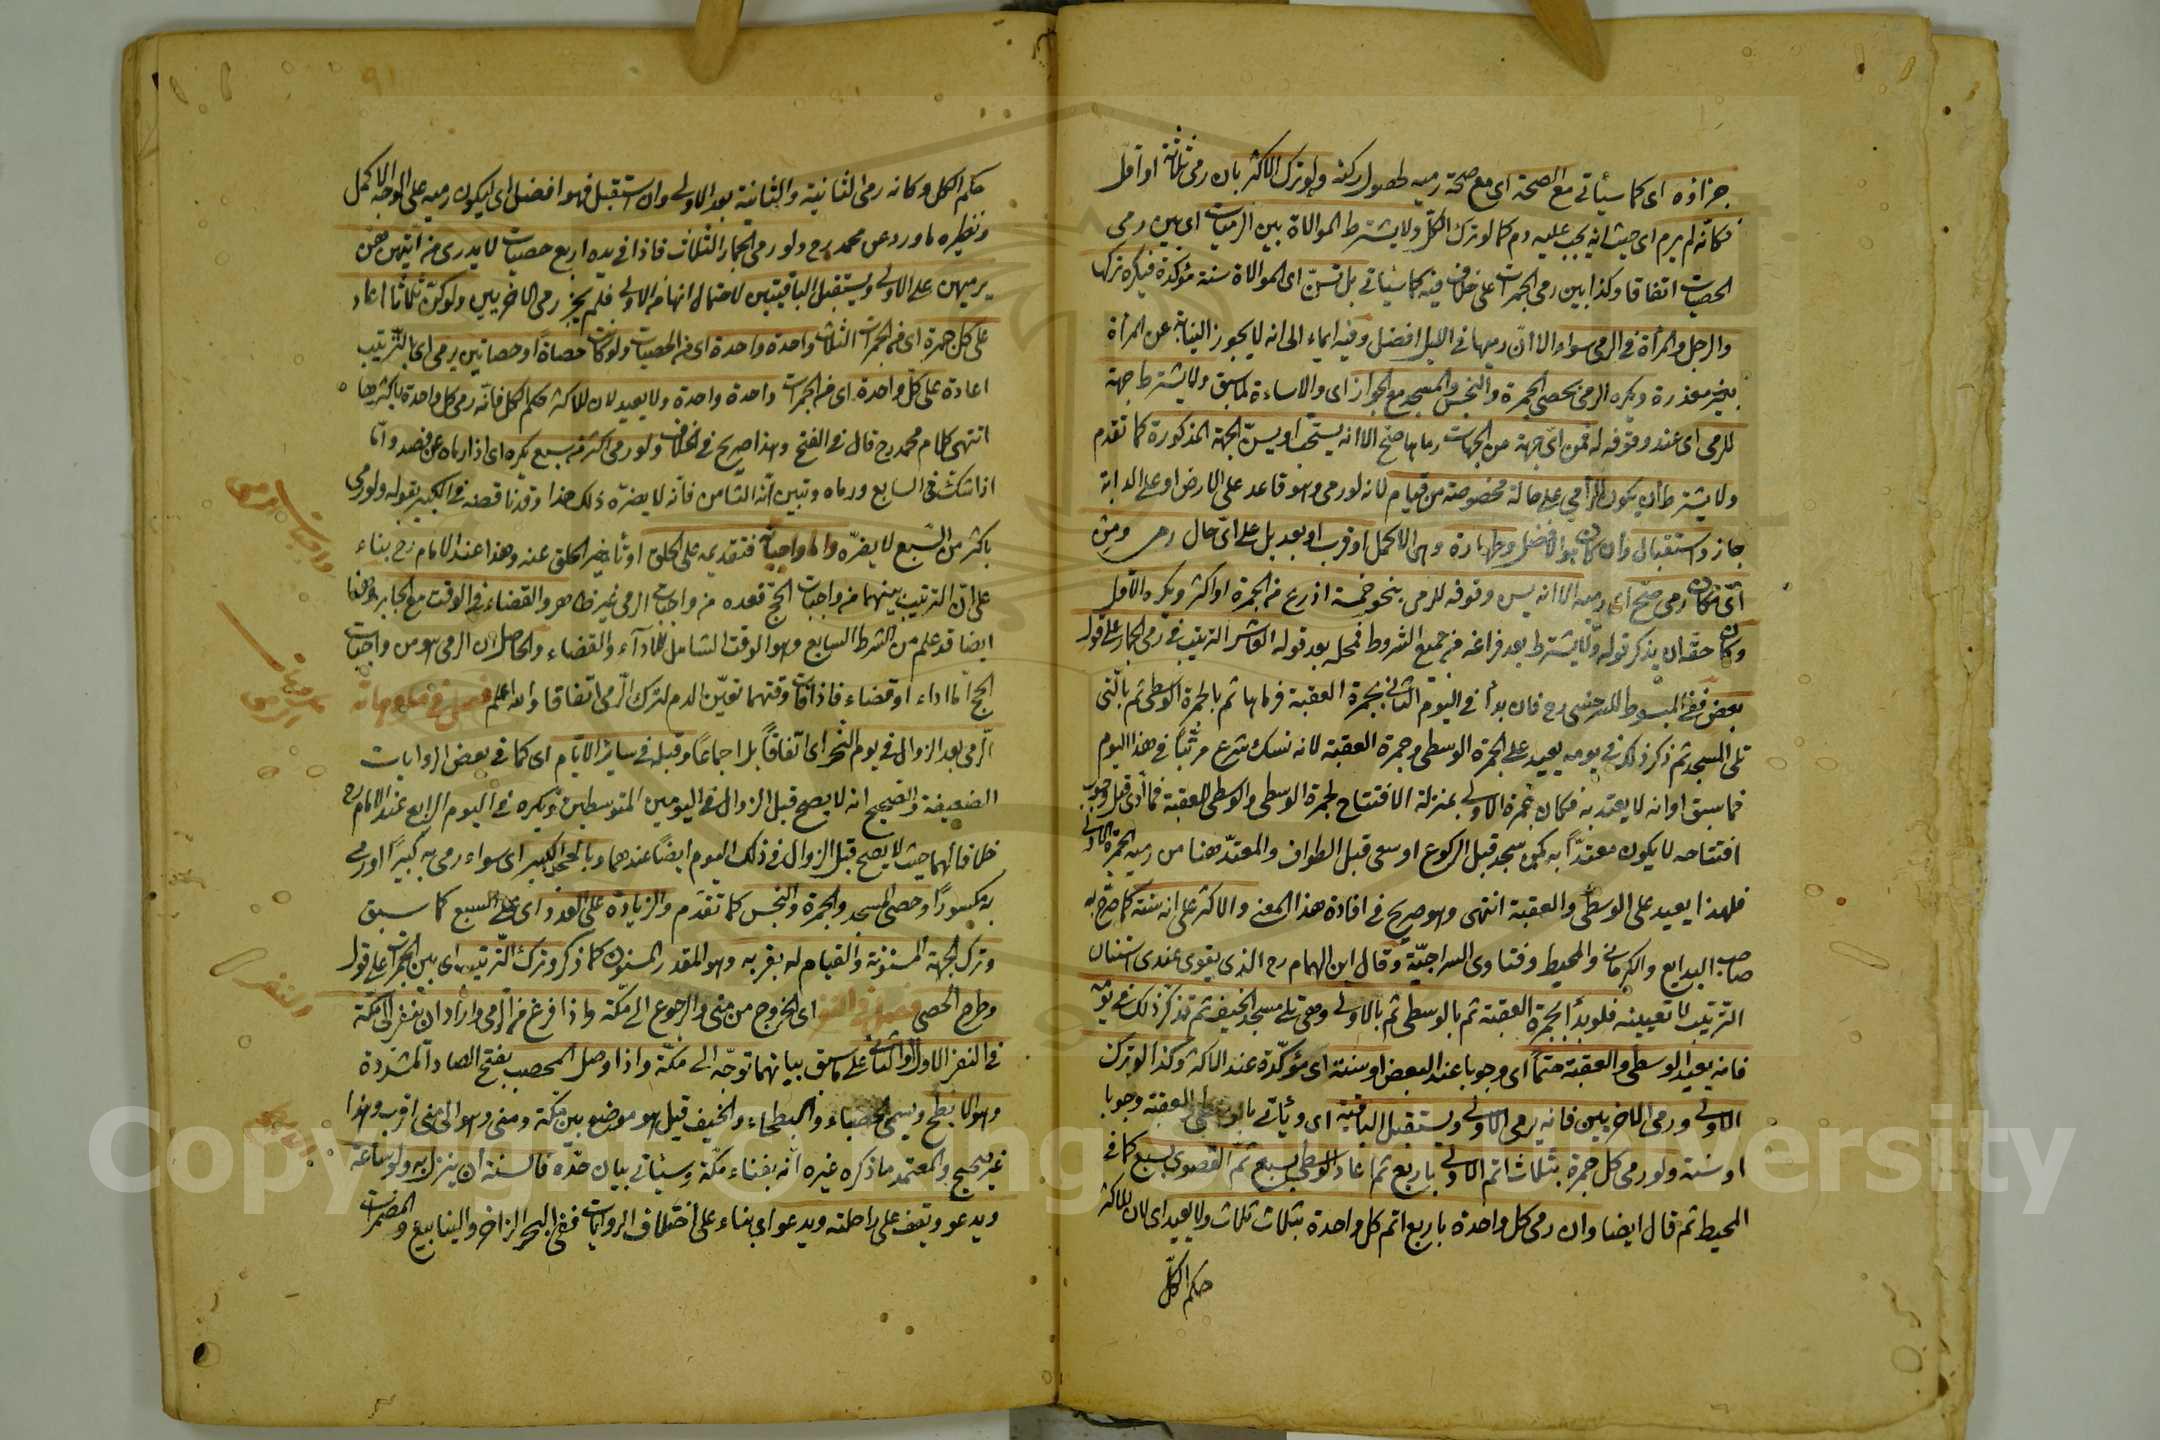 جزاؤه اى كما سيأتى مع الصحة اى مع صحة رميه لحصول ركنه ولو ترك الاكثر بان رمى ثلاثة او اقل
فكانه لم يرم اى حيث انه يجب عليه دم كما لو ترك الكل ولا يشترط الموالاة بين الرميات اى بين رمى
الحصيات اتفاقا وكذا بين رمى الجمرات على خلاف فيه كما سيأتى بل تسن اى الموالاة سنة مؤكدة فيكره تركها
والرجل والمرأة فى الرمى سواء الا ان رميها فى الليل افضل وفيه ايماء الى انه لا يجوز النيابة عن المرأة
بغير معذرة ويكره الرمى بحصى الجمرة والنجس والمسجد مع الجواز اى والاساءة لما سبق ولا يشترط جهة
للرمى اى عند وقوفه له فمن اى جهة من الجهات رماها صح الا انه يستحب او يسن الجهة المذكورة كما تقدم
ولا يشترط ان يكون الرامى على حالة مخصوصة من قيام لانه لو رمى وهو قاعد على الارض او على الدابة
جاز واستقبال وان كان هو الافضل وطهارة وهى الاكمل او قرب او بعد بل على اى حال رمى ومن
اى مكان رمى صح اى رميه الا انه يسن وقوفه للرمى بنحو خمسة اذرع من الجمرة او اكثر ويكره الاقل
وكان حقه ان يذكر قوله ولا يشترط بعد فراغه من جميع الشروط فمحله بعد قوله العاشر الترتيب فى رمى الجمار على قول
بعض ففى المبسوط للسرخسى رح فان بدأ فى اليوم الثانى بجمرة العقبة فرماها ثم بالجمرة الوسطى ثم بالتى
تلى المسجد ثم ذكر ذلك فى يومه يعيد على الجمرة الوسطى وجمرة العقبة لانه نسك شرع مرتبا فى هذا اليوم
فما سبق اوانه لا يعتد به فكان جمرة الاولى بمنزلة الافتتاح لجمرة الوسطى والوسطى للعقبة فما ادى قبل وجوب
افتتاحه لا يكون معتدا به كمن سجد قبل الركوع او سعى قبل الطواف والمعتد هنا من رميه الجمرة الاولى
فلهذا يعيد على الوسطى والعقبة انتهى وهو صريح فى افادة هذا المعنى والاكثر على انه سنة كما صرح به
صاحب البدايع والكرمانى والمحيط وفتاوى السراجية وقال ابن الهمام رح الذى يقوى عندى استنان
الترتيب لا تعيينه فلو بدأ بجمرة العقبة ثم بالوسطى ثم بالاولى وهى تلى مسجد الخيف ثم تذكر ذلك فى يومه
فانه يعيد الوسطى والعقبة حتما اى وجوبا عند البعض او سنة اى مؤكدة عند الاكثر وكذا لو ترك
الاولى ورمى الاخريين فانه يرمى الاولى ويستقبل الباقية اى ويأتى بالوسطى العقبة وجوبا
او سنة ولو رمى كل جمرة بثلاث اتم الاولى باربع ثم اعاد الوسطى بسبع ثم القصوى بسبع كما فى
المحيط ثم قال ايضا وان رمى كل واحدة باربع اتم كل واحدة بثلاث ثلاث ولا يعيد اى لان للاكثر
حكم الكل
حكم الكل وكانه رمى الثانية والثانية بعد الاولى وان استقبل فهو افضل اى ليكون رميه على الوجه الاكمل
ونظيره ما ورد عن محمد رح ولو رمى الجمار الثلاث فاذا فى يده اربع حصيات لا يدرى من ايتهن هن
يرميهن على الاولى ويستقبل الباقيتين لاحتمال انها من الاولى فلم يجز رمى الاخريين ولو كن ثلاثا اعاد
على كل جمرة اى من الجمرات الثلاث واحدة واحدة اى من الحصيات ولو كانت حصاة او حصاتين يرمى اى بالترتيب
اعادة على كل واحدة اى من الجمرات واحدة واحدة ولا يعيد لان للاكثر حكم الكل فانه رمى كل واحدة باكثرها
انتهى كلام محمد رح قال فى الفتح وهذا صريح فى الخلاف ولو رمى اكثر من سبع يكره اى اذا رماه عن قصد واما
اذا شك فى السابع ورماه وتبين انه الثامن فانه لا يضره ذلك هذا وقد ناقضه فى الكبير بقوله ولو رمى
باكثر من السبع لا يضره واما واجباته فتقديمه على الحلق او تأخير الحلق عنه وهذا عند الامام رح بناء
على ان الترتيب بينهما من واجبات الحج فعده من واجبات الرمى غير ظاهر والقضاء فى الوقت مع الجابر وهنا
ايضا قد علم من الشرط السابع وهو الوقت الشامل للاداء والقضاء والحاصل ان الرمى هو من واجبات
الحج اما اداء او قضاء فاذا فات وقتهما تعين الدم لترك الرمى اتفاقا والله اعلم فصل فى مكروهاته
الرمى بعد الزوال فى يوم النحر اى اتفاقا بل اجماعا وقبله فى سائر الايام اى كما فى بعض الروايات
الضعيفة والصحيح انه لا يصح قبل الزوال فى اليومين المتوسطين ويكره فى اليوم الرابع عند الامام رح
خلافا لهما حيث لا يصح قبل الزوال فى ذلك اليوم ايضا عندهما وبالحجر الكبير اى سواء رمى به كبيرا او رمى
به مكسورا وحصى المسجد والجمرة والنجس كما تقدم والزيادة على العدد اى على السبع كما سبق
وترك الجهة المسنونة والقيام له بقربه وهو المقدر المسنون كما ذكر وترك الترتيب اى بين الجمرات على قول
وطرح الحصى فصل فى النفر اى الخروج من منى والرجوع الى مكة واذا فرغ من الرمى واراد ان ينفر الى مكة
فى النفر الاول او الثانى على ما سبق بيانهما توجه الى مكة واذا وصل المحصب بفتح الصاد المشددة
وهو الابطح ويسمى الحصباء والبطحاء والخيف قيل هو موضع بين مكة ومنى وهو الى منى اقرب وهذا
غير صحيح والمعتمد ما ذكره غيره انه بفناء مكة وسيأتى بيان حده فالسنة ان ينزل به ولو ساعة
ويدعو ويقف على راحلته ويدعو اى بناء على اختلاف الروايات ففى البحر الزاخر والينابيع والمضمرات
واجبات الرمى
النفر